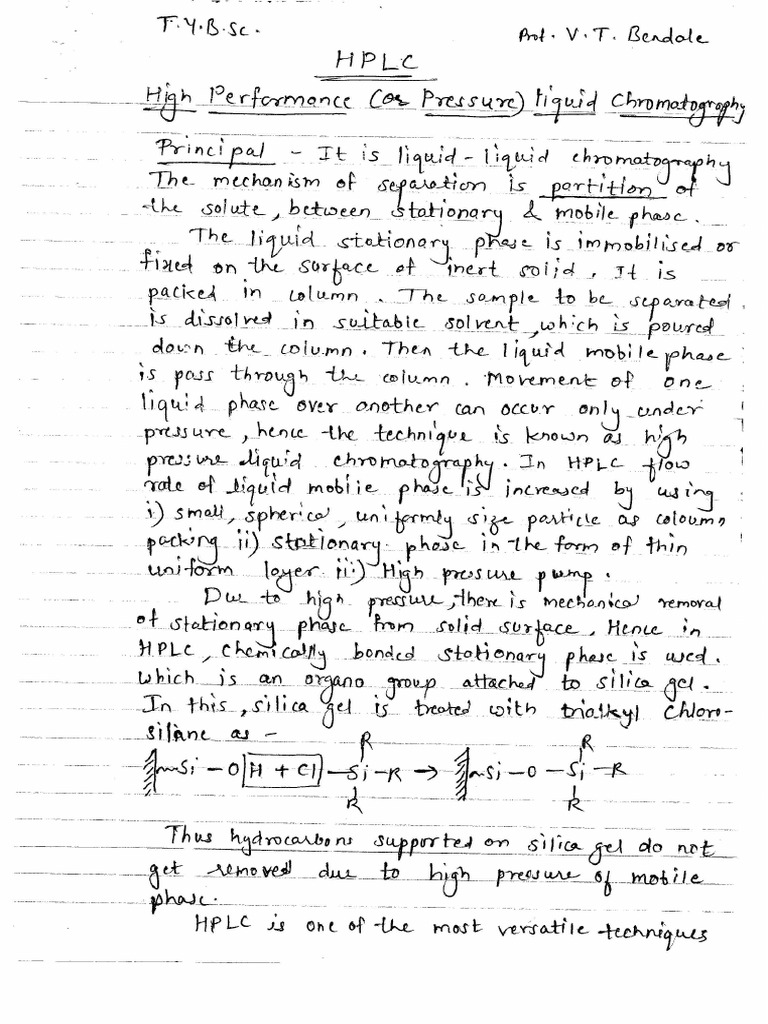 T.Y.B.Sc. Prof. V. T. Bendale
HPLC
High Performance (or Pressure) liquid Chromatography
Principal - It is liquid-liquid chromatography
The mechanism of separation is partition of
the solute, between stationary & mobile phase.
The liquid stationary phase is immobilised or
fixed on the surface of inert solid. It is
packed in column. The sample to be separated
is dissolved in suitable solvent, which is poured
down the column. Then the liquid mobile phase
is pass through the column. Movement of one
liquid phase over another can occur only under
pressure, hence the technique is known as high
pressure liquid chromatography. In HPLC flow
rate of liquid mobile phase is increased by using
i) small, spherical, uniformly size particle as coloumn
packing ii) stationary phase in the form of thin
uniform layer iii) High pressure pump.
Due to high pressure, there is mechanical removal
of stationary phase from solid surface. Hence in
HPLC, chemically bonded stationary phase is used.
which is an organo group attached to silica gel.
In this, silica gel is treated with trialkyl chloro-
silane as -
R R
Si - O H + Cl - Si - R → Si - O - Si - R
R R
Thus hydrocarbons supported on silica gel do not
get removed due to high pressure of mobile
phase.
HPLC is one of the most versatile techniques